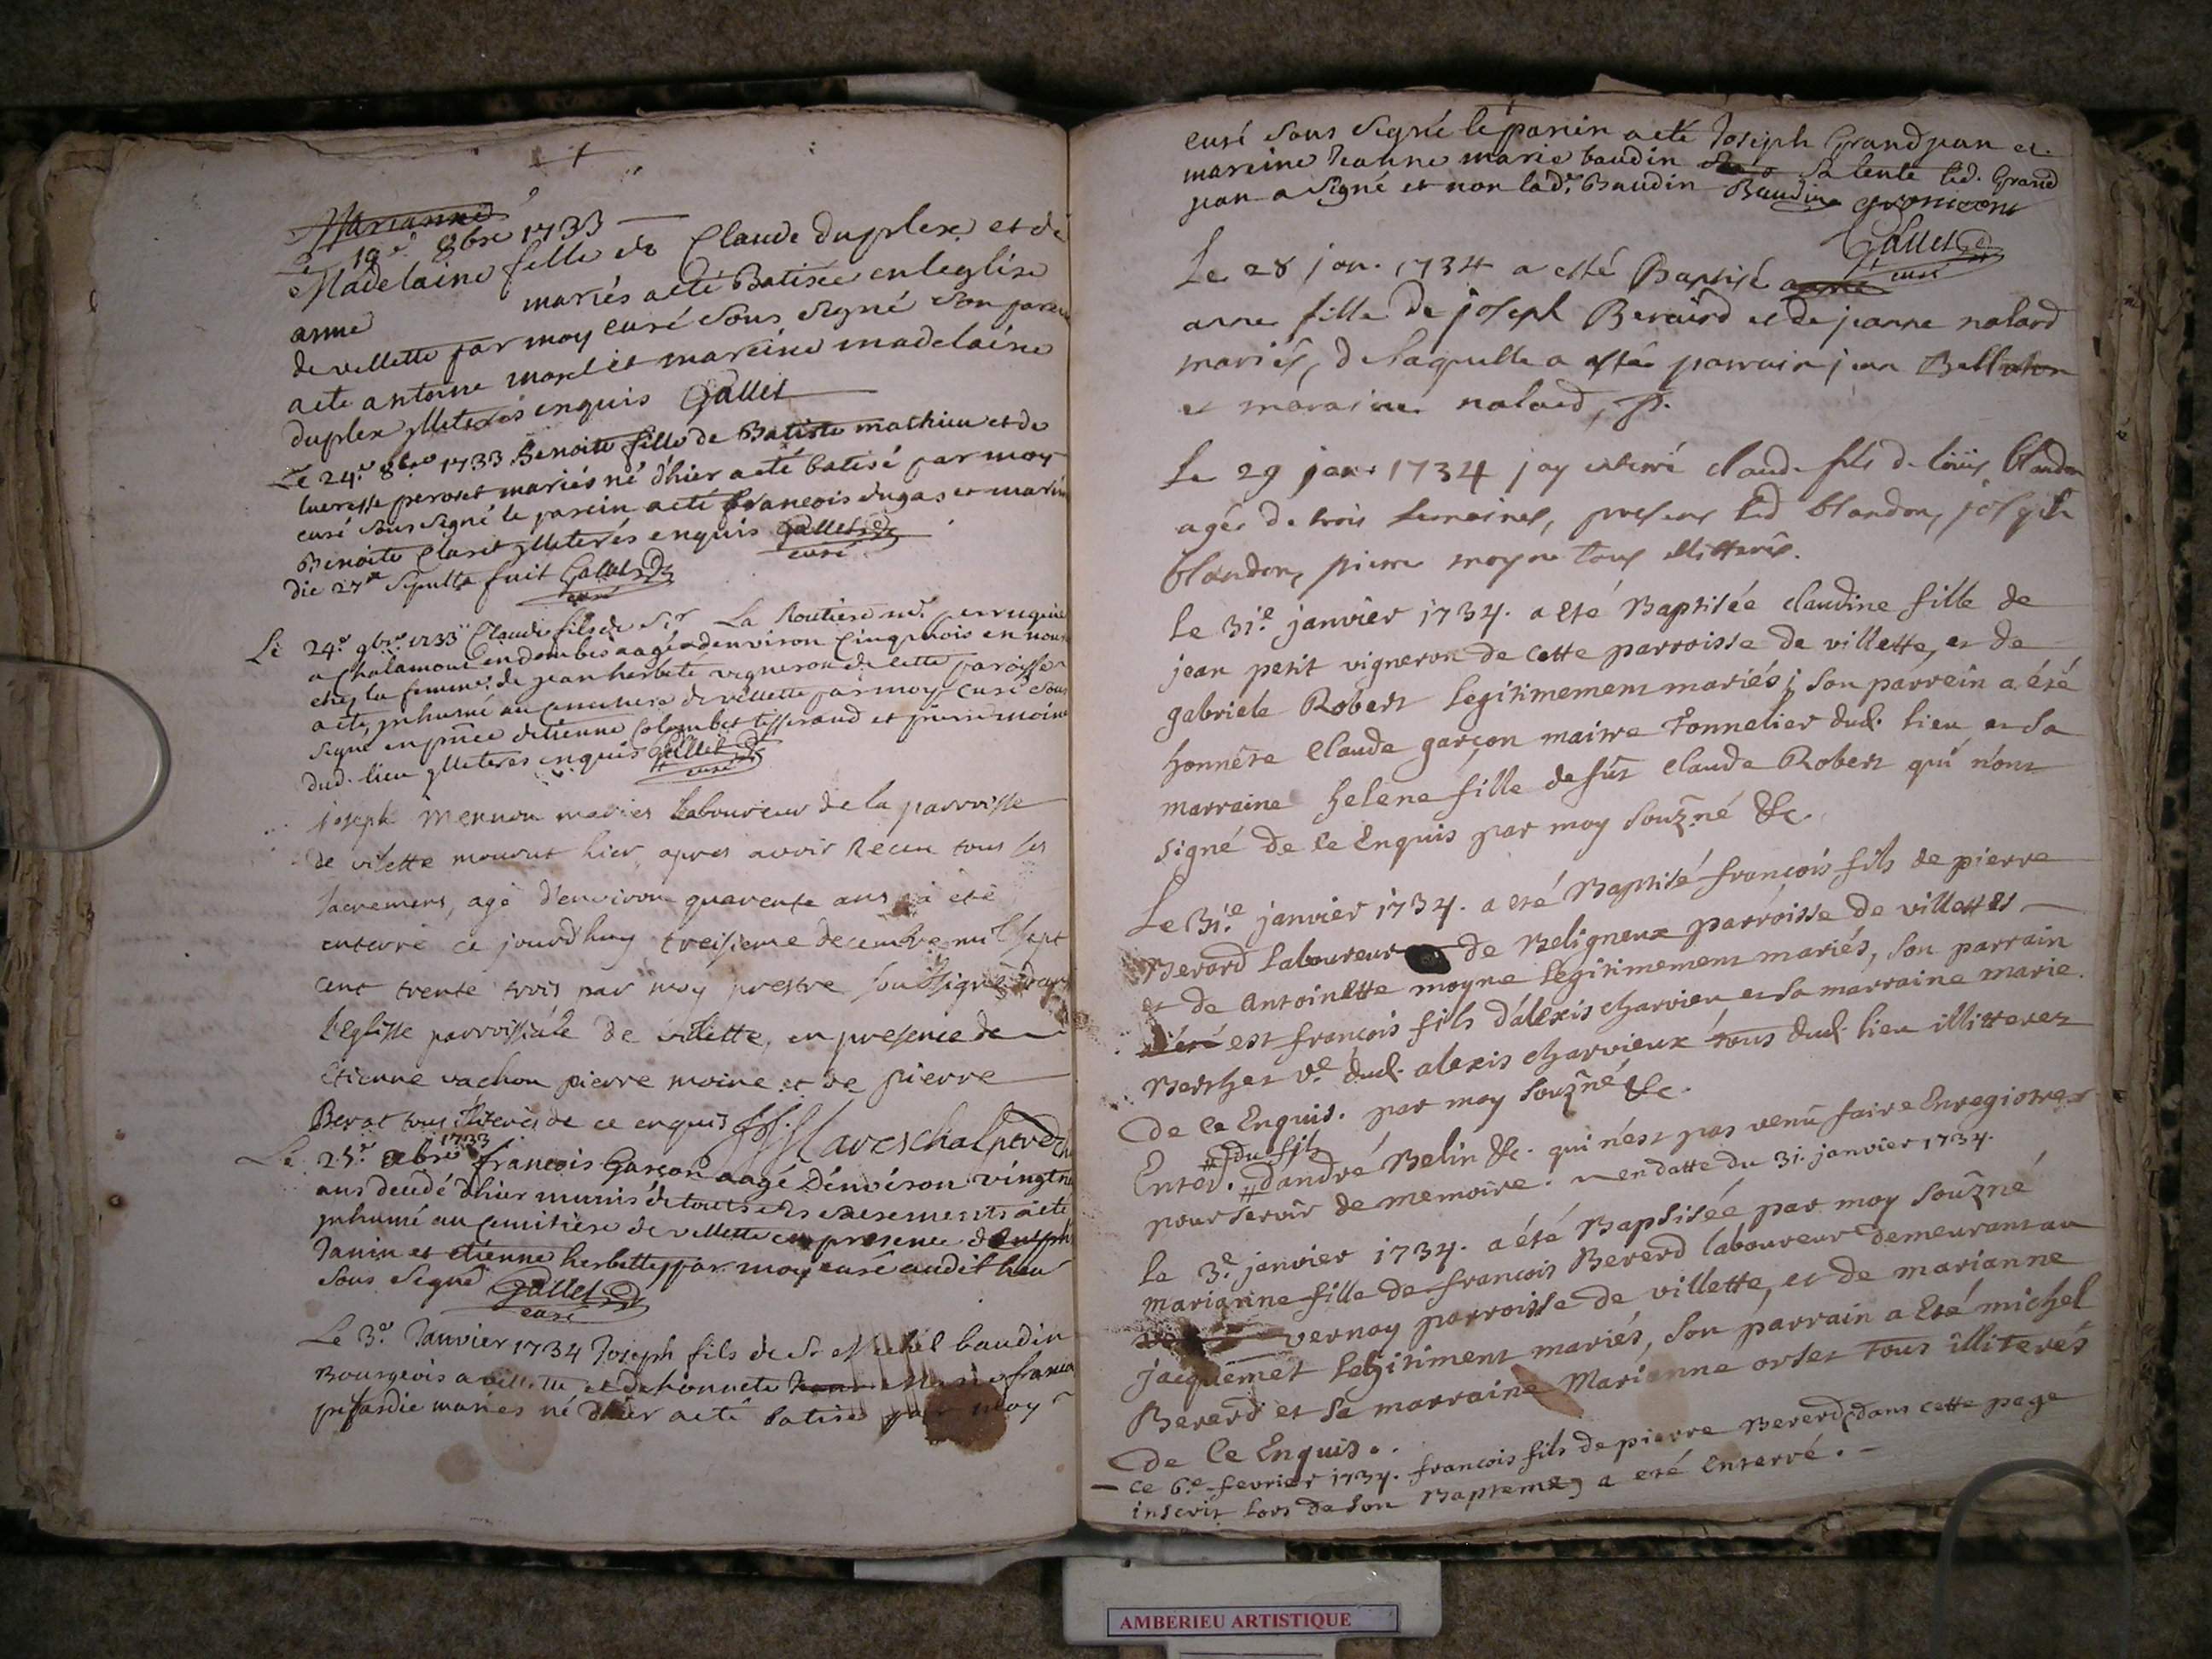 Le 19e 8bre 1733
Madelaine fille de Claude duplex et de
anne mariés a eté Batisée en leglise
de villette par moy curé sous signé son parein
a eté antoine morel et mareine madelaine
duplex illiterés enquis Gallet
Le 24e 8bre 1733 Benoite fille de Batiste mathieu et de
lucresse peroset mariés né d'hier a eté batisé par moy
curé sous signé le parein a eté francois dugas et mareine
Benoite Claret illiterés enquis Gallet
curé
die 27a sepulta fuit Gallet
curé
Le 24e 9bre 1733 Claude fils de Sr La Routiere md. perruquier
a Chalamont en dombes aagé denviron Cinq mois en nourice
chez la femme de jean herbete vigneron de cette paroisse
a eté inhumé au cemetiere de villette par moy Curé sous
signé en pnce detienne Colombet tisserand et pierre moine
dud. lieu illiteres enquis Gallet
curé
joseph mermon mariés Laboureur de la parroisse
de vilette mourut hier, apres avoir Receu tous ses
sacremens, agé d'environ quarente ans, a été
enterré ce jourdhuy treisieme decembre mil sept
cent trente trois par moy prestre soussigné dans
l'eglisse parroissiale de villette, en presence de
etienne vachon pierre moine et de pierre
Berat tous illiterés de ce enquis Mareschal ptre
1733
Le 25e xbre francois Garçon aagé d'environ vingt
ans decedé d'hier munis de touts ses sacrements a eté
inhumé au Cemitiere de villette en presence de
Janin et etienne herbette par moy curé audit lieu
sous signé Gallet
curé
Le 3e Janvier 1734 Joseph fils de Sr Michel baudin
Bourgeois a villette et de honnete
mariés né d'hier a eté batisé par moy
curé sous signé le parein a eté Joseph Grandjean et
mareine Jeanne marie baudin sa tente led. Grand
jean a signé et non lade Baudin Baudin
Gallet
curé
Le 28 jan. 1734 a esté Baptisé
anne fille de joseph Beraird et de jeanne nalard
mariés, de laquelle a esté parrain jean
et maraine nalard,
Le 29 janr 1734 jay enterré claude fils de loüis blandon
agée de trois semaines, presens led blandon, joseph
blandon, pierre moyne tous illitterés.
Le 31.e janvier 1734. a eté Baptisée claudine fille de
jean petit vigneron de cette parroisse de villette, et de
gabriele Robert legitimement mariés; son parrein a été
honnête Claude garçon maitre Tonnelier dud. lieu et sa
marraine helene fille de fût claude Robert qui n'ont
signé de ce Enquis par moy souzné &c.
Le 31.e janvier 1734. a eté Baptisé françois fils de pierre
Berard laboureur de Beligneux parroisse de villettes
et de Antoinette moyne legitimement mariés, son parrain
est françois fils d'alexis charvieu et sa marraine marie
Berthet ve. dud. alexis charvieux tous dud. lieu illitterez
De ce Enquis. par moy souzné &c.
# du fils
Enter. # d'andré Belin &c. qui n'est pas venû faire Enregistrer
pour servir de memoire. en datte du 31. janvier 1734.
Le 3.e janvier 1734. a été Baptisée par moy souzné
marianne fille de francois Bererd laboureur demeurant au
vernay parroisse de villette, et de marianne
jacquemet legitiment mariés, son parrain a eté michel
Bererd et sa marraine Marianne orset tous illiterés
De ce Enquis.
— Ce 6.e fevrier 1734. francois fils de pierre Bererd, dans cette page
inscrit lors de son Bapteme, a eté Enterré. —
AMBERIEU ARTISTIQUE